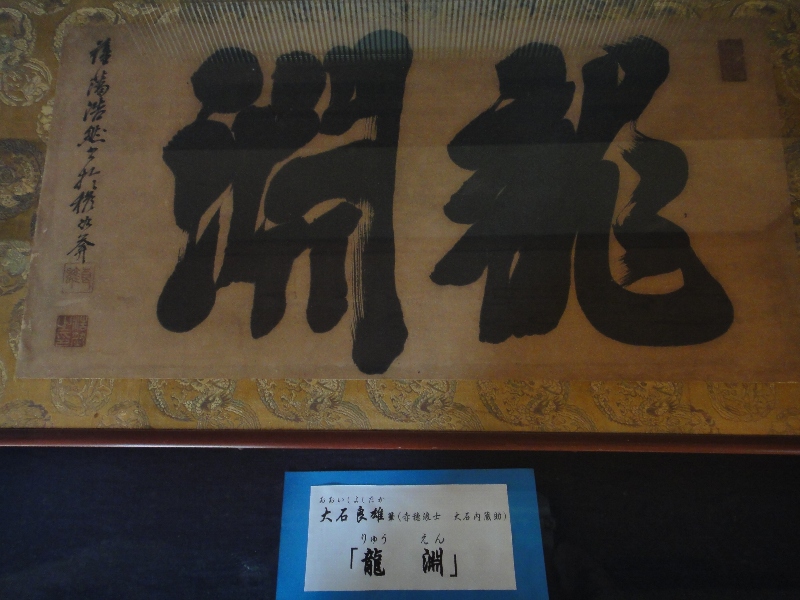 龍淵
おおいしよしたか
大石良雄筆(赤穂浪士 大石内蔵助)
りゅう えん
「龍 淵」